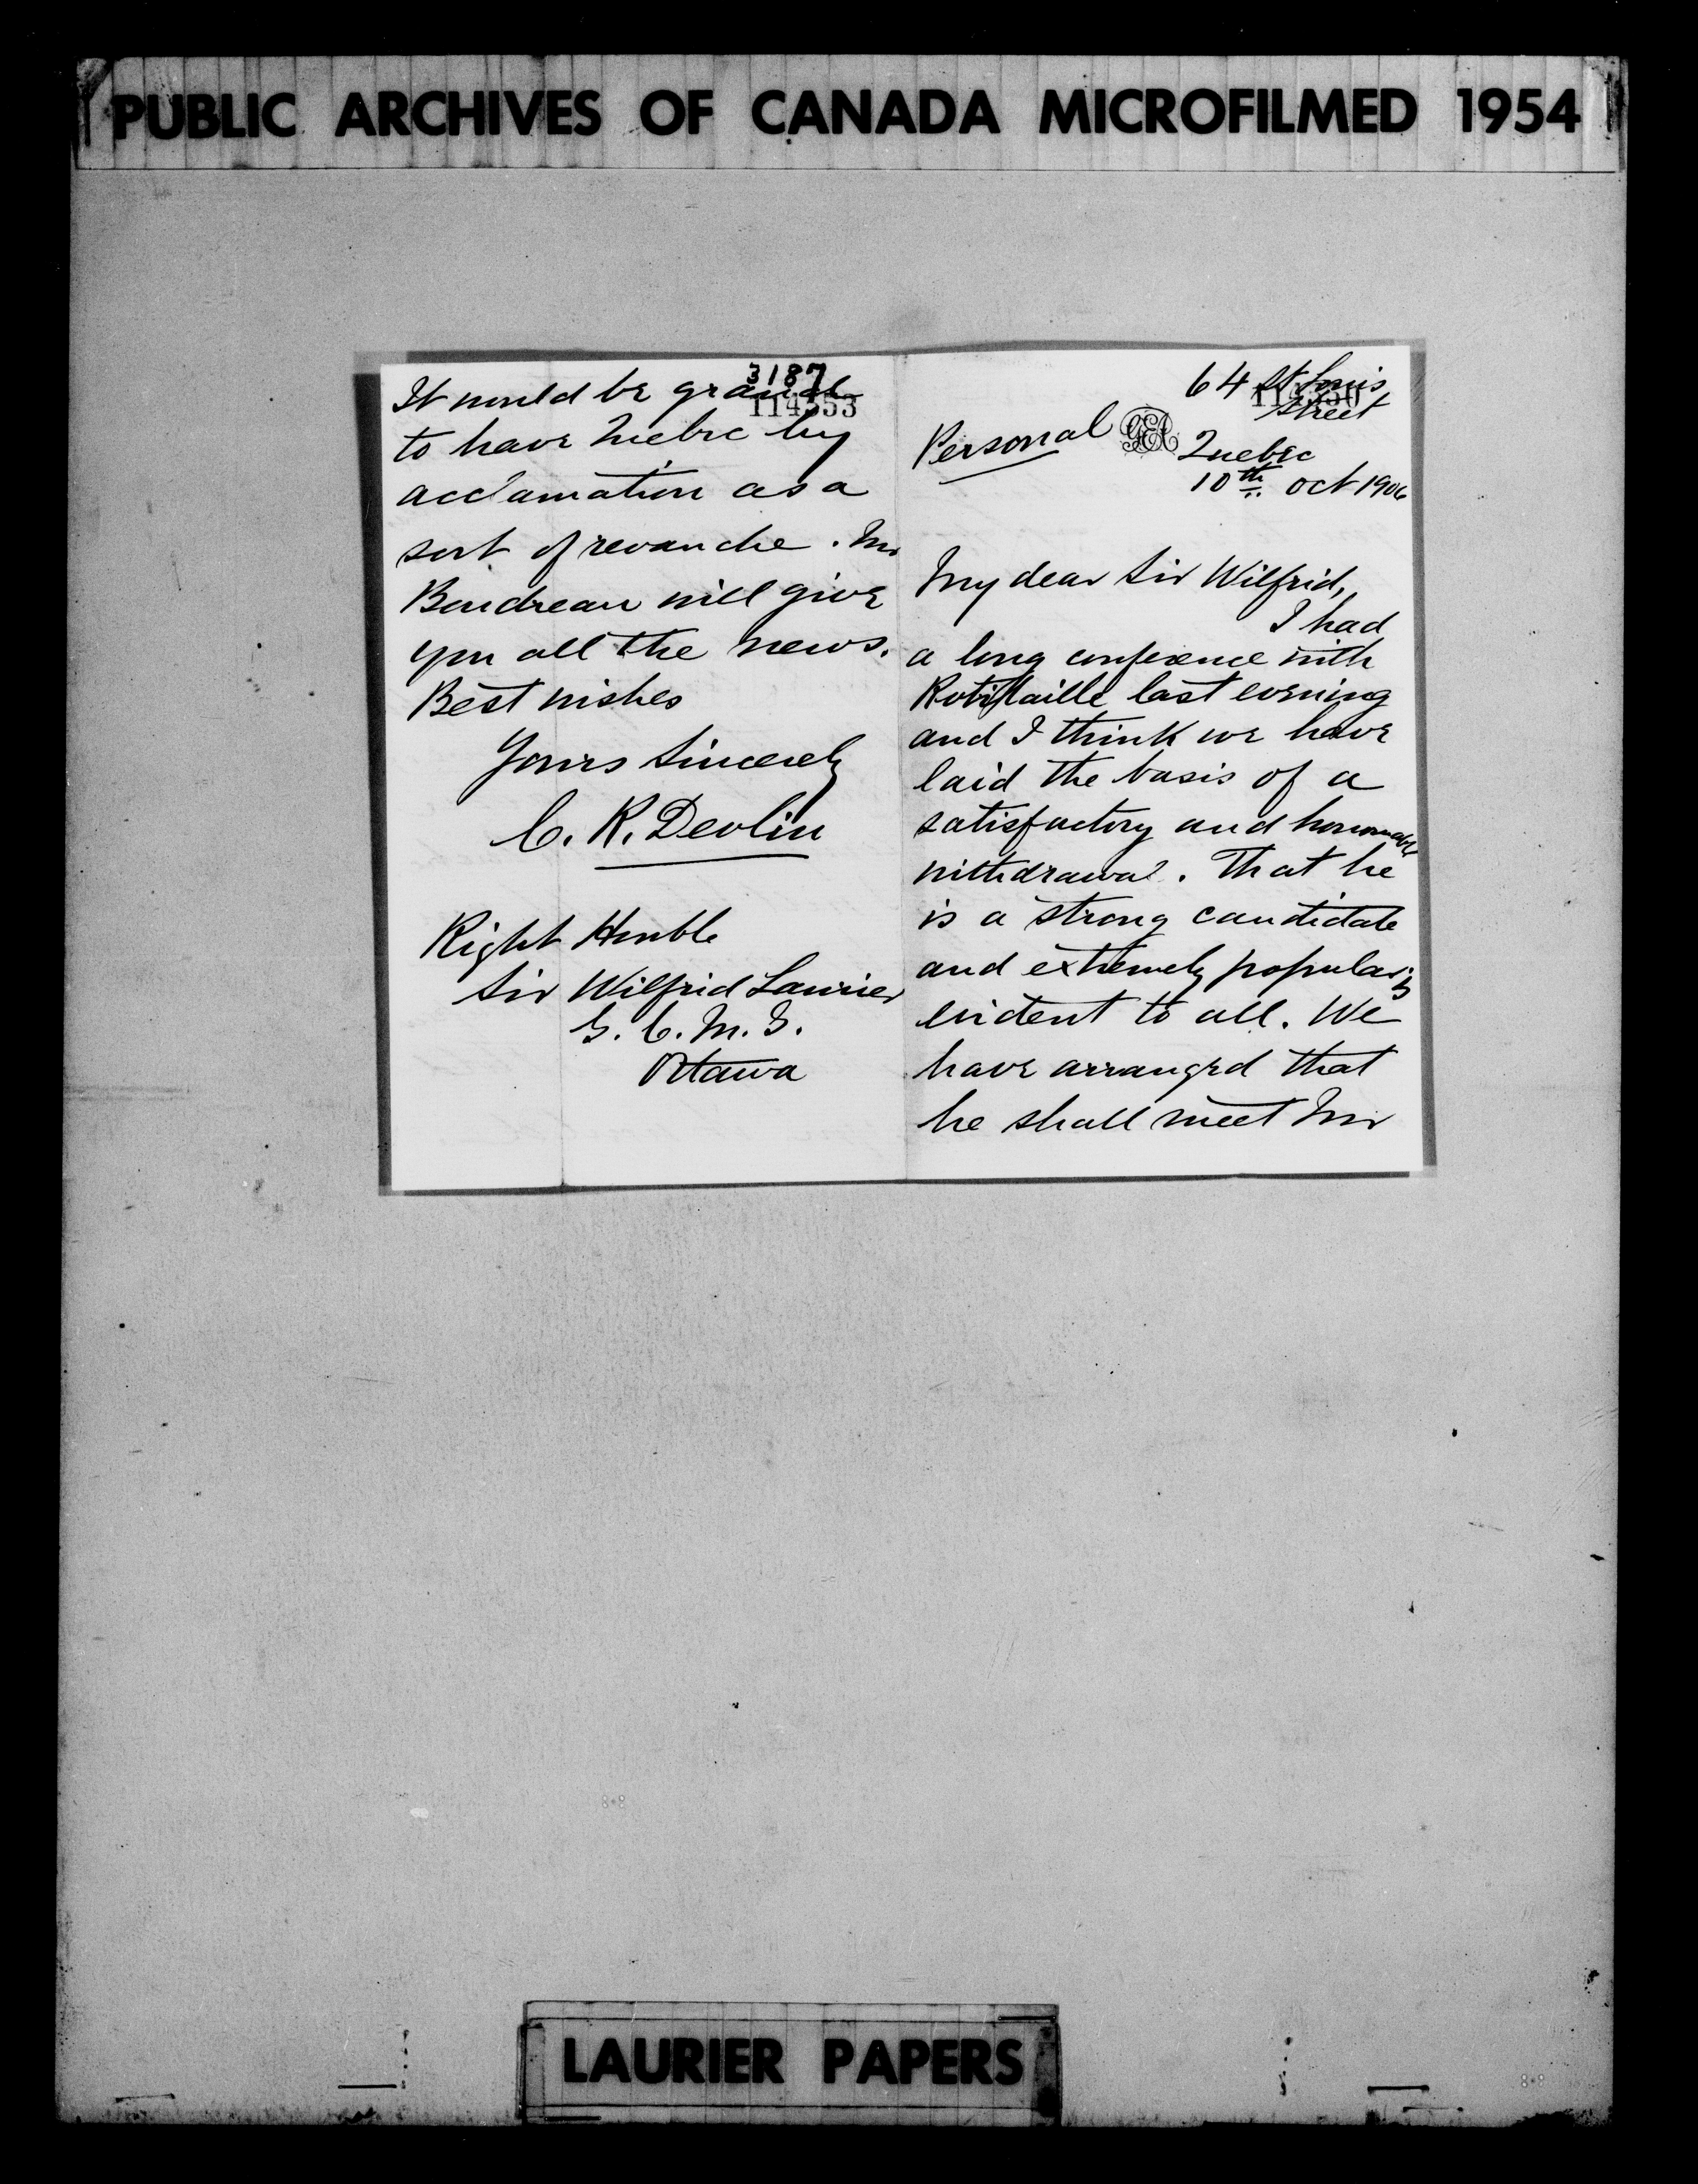 PUBLIC ARCHIVES OF CANADA MICROFILMED 1954
3187
114553
It would be grand
to have Quebec by
acclamation as a
sort of revanche. Mr
Boudreau will give
you all the news.
Best wishes
Yours Sincerely
C. R. Devlin
Right Honble
Sir Wilfrid Laurier
G. C. M. G.
Ottawa
64 St Louis
Street
114550
Personal
GEA
Quebec
10th oct 1906
My dear Sir Wilfrid,
I had
a long conference with
Robitaille last evening
and I think we have
laid the basis of a
satisfactory and honorable
withdrawal. That he
is a strong candidate
and extremely popular is
evident to all. We
have arranged that
he shall meet Mr
LAURIER PAPERS